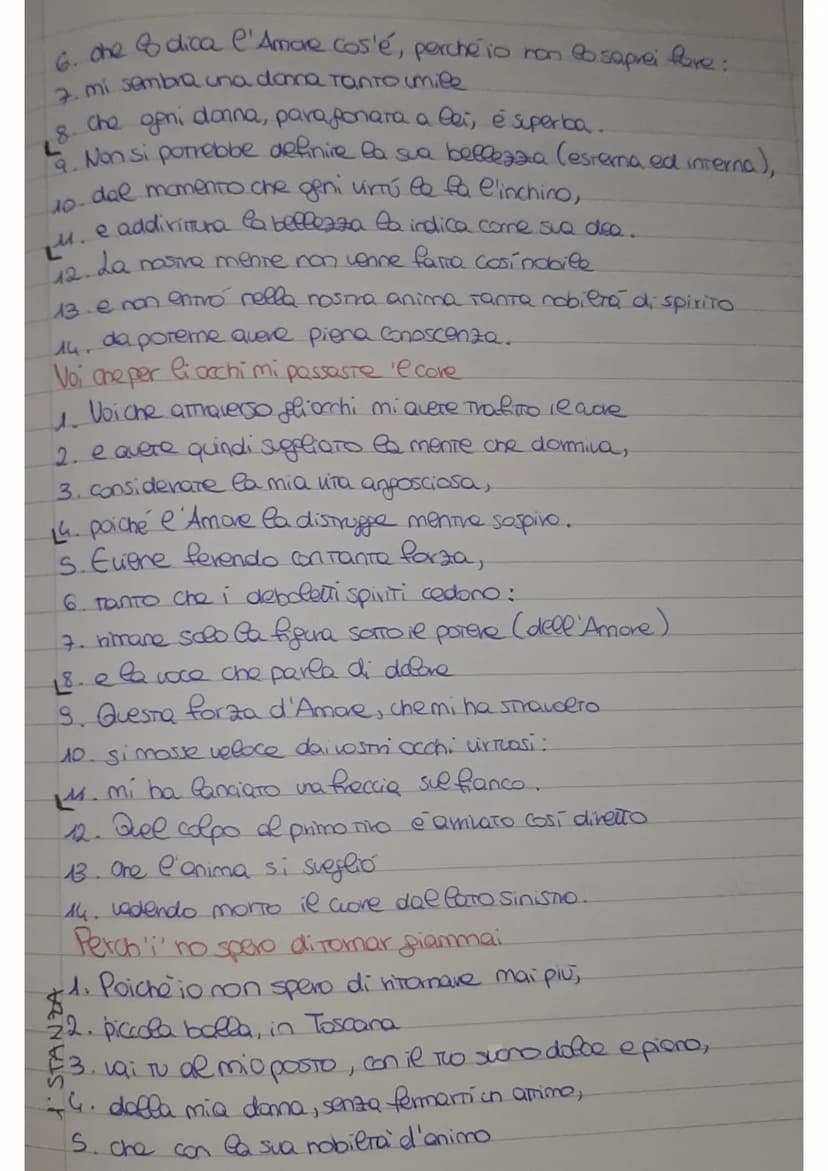 6. che lo dica l'Amore cos'é, perché io non lo saprei fare:
7. mi sembra una donna tanto umile
8. che ogni donna, paragonata a lei, é superba.
9. Non si potrebbe definire la sua bellezza (esterna ed interna),
10. dal momento che ogni virtú le fa l'inchino,
11. e addirittura la bellezza la indica come sua dea.
12. La nostra mente non venne fatta cosí nobile
13. e non entró nella nostra anima tanta nobiltá di spirito
14. da poterne avere piena conoscenza.
Voi che per li occhi mi passaste 'l core
1. Voi che attraverso gli occhi mi avete trafitto il cuore
2. e avete quindi svegliato la mente che dormiva,
3. considerate la mia vita angosciosa,
4. poiché l'Amore la distrugge mentre sospiro.
5. E viene ferendo con tanta forza,
6. tanto che i deboletti spiriti cedono:
7. rimane solo la figura sotto il potere (dell'Amore)
8. e la voce che parla di dolore
9. Questa forza d'Amore, che mi ha stravolto
10. si mosse veloce dai vostri occhi virtuosi:
11. mi ha lanciato una freccia sul fianco.
12. Quel colpo al primo tiro é arrivato cosí diretto
13. che l'anima si sveglió
14. vedendo morto il cuore dal lato sinistro.
Perch'i' no spero di tornar giammai
1. Poiché io non spero di ritornare mai piú,
1ª STANZA
2. piccola balla, in Toscana
3. vai tu al mio posto, con il tuo suono dolce e piano,
4. dalla mia donna, senza fermarti un attimo,
5. che con la sua nobiltá d'animo